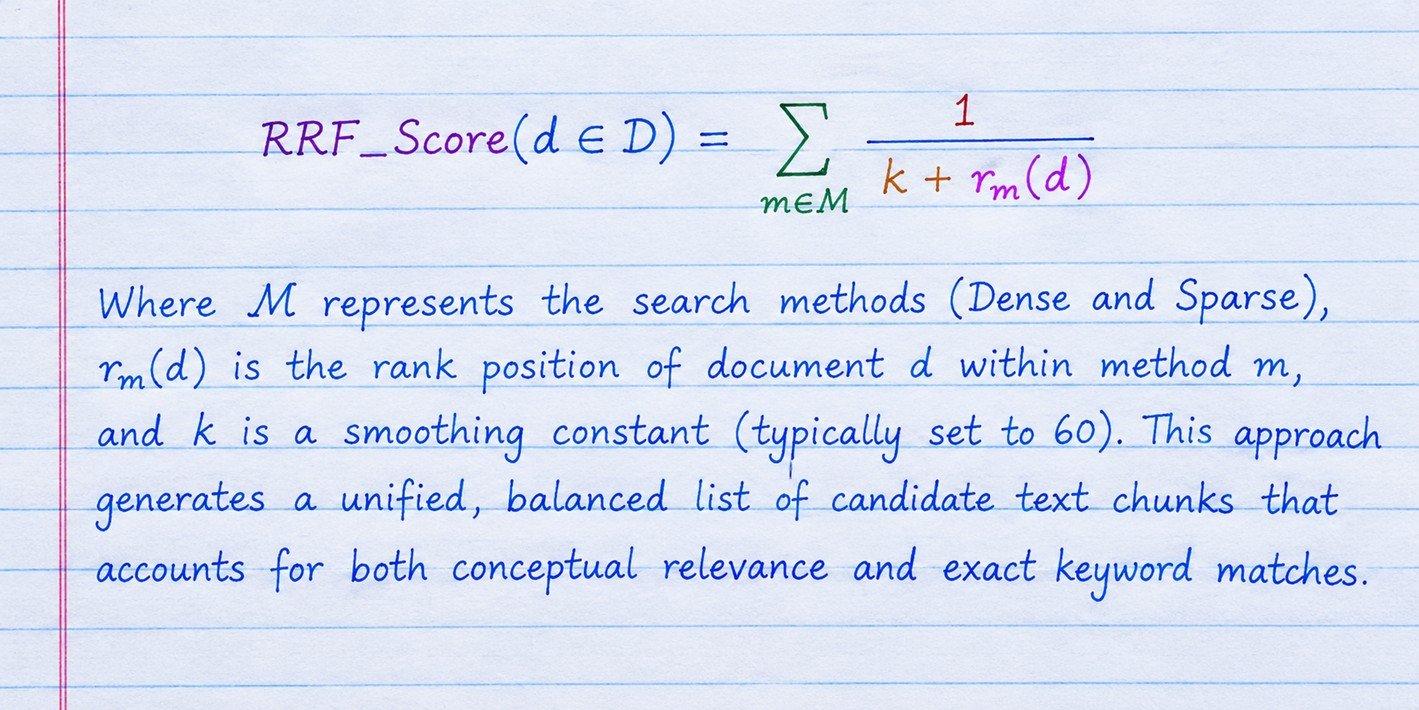 RRF_Score(d ∈ D) = ∑_{m∈M} 1 / (k + r_m(d))
Where M represents the search methods (Dense and Sparse),
r_m(d) is the rank position of document d within method m,
and k is a smoothing constant (typically set to 60). This approach
generates a unified, balanced list of candidate text chunks that
accounts for both conceptual relevance and exact keyword matches.